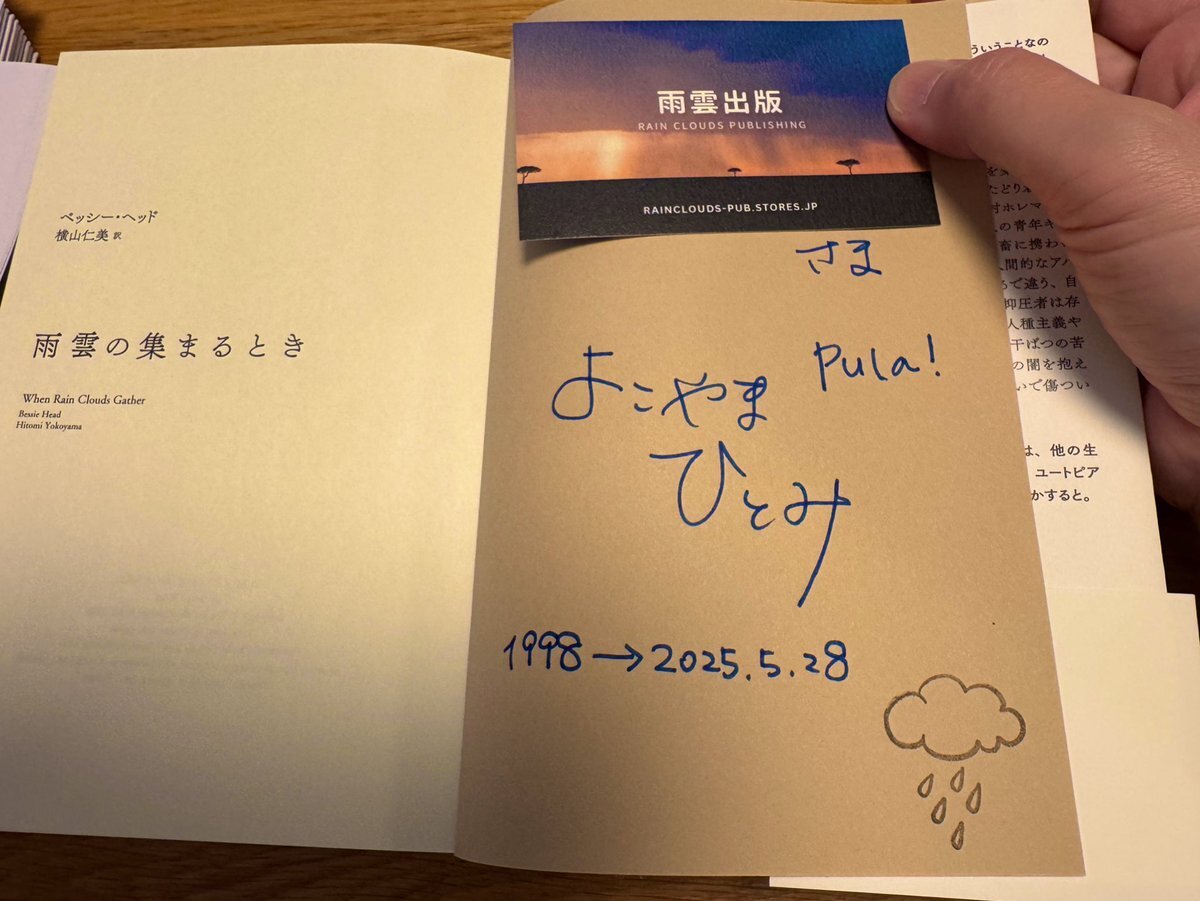 ベッシー・ヘッド
横山仁美 訳
雨雲の集まるとき
When Rain Clouds Gather
Bessie Head
Hitomi Yokoyama
雨雲出版
RAIN CLOUDS PUBLISHING
RAINCLOUDS-PUB.STORES.JP
さま
Pula!
よこやま
ひとみ
1998→2025.5.28
ういうことなの
を
たどり
村ホレマ
の青年
畜に携わ
間的なア
で違う、自
抑圧者は存
人種主義や
干ばつの苦
の闇を抱え
いで傷つい
は、他の生
ユートピア
かすると。